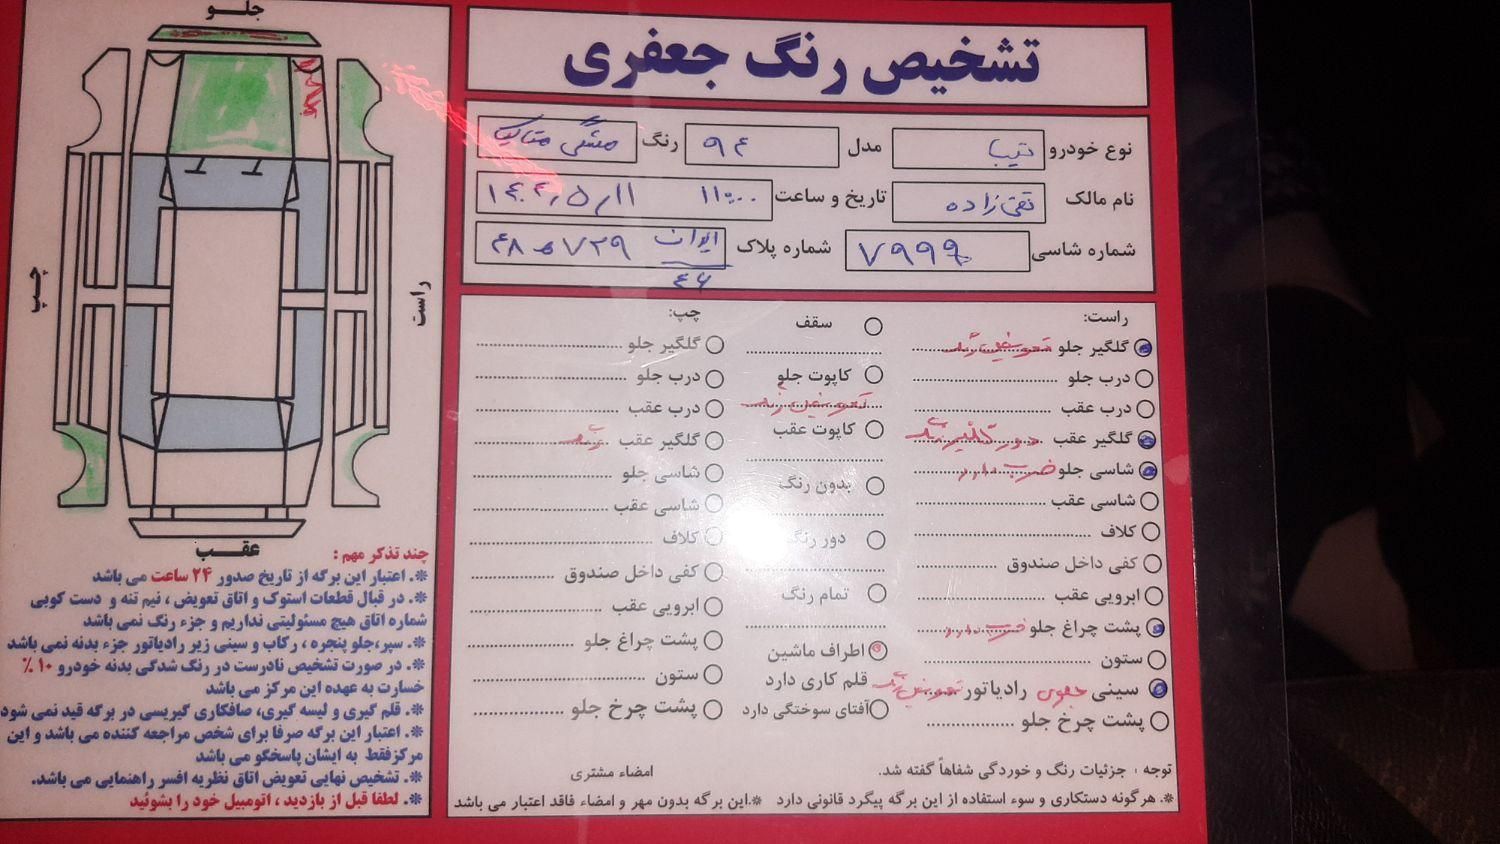 تشخیص رنگ جعفری
نوع خودرو تیبا مدل ۹۴ رنگ مشکی متالیک
نام مالک تقی زاده تاریخ و ساعت ۱۱:۰۰
شماره شاسی شماره پلاک ایران
جلو
چپ
راست
عقب
راست:
گلگیر جلو تعویض رنگ
درب جلو
درب عقب
گلگیر عقب دور گلگیر رنگ
شاسی جلو ضرب دارد
شاسی عقب
کلاف
کفی داخل صندوق
ابرویی عقب
پشت چراغ جلو ضرب دارد
ستون
سینی جلوی رادیاتور تعویض رنگ
پشت چرخ جلو
سقف
کاپوت جلو
تعویض رنگ
کاپوت عقب
بدون رنگ
دور رنگ
تمام رنگ
اطراف ماشین
قلم کاری دارد
آفتاب سوختگی دارد
چپ:
گلگیر جلو
درب جلو
درب عقب
گلگیر عقب رنگ
شاسی جلو
شاسی عقب
کلاف
کفی داخل صندوق
ابرویی عقب
پشت چراغ جلو
ستون
پشت چرخ جلو
توجه : جزئیات رنگ و خوردگی شفاهاً گفته شد.
امضاء مشتری
❊. هرگونه دستکاری و سوء استفاده از این برگه پیگرد قانونی دارد
❊.این برگه بدون مهر و امضاء فاقد اعتبار می باشد
چند تذکر مهم :
❊. اعتبار این برگه از تاریخ صدور ۲۴ ساعت می باشد
❊. در قبال قطعات استوک و اتاق تعویض ، نیم تنه و دست کوبی
شماره اتاق هیچ مسئولیتی نداریم و جزء رنگ نمی باشد
❊. سپر،جلو پنجره ، رکاب و سینی زیر رادیاتور جزء بدنه نمی باشد
❊. در صورت تشخیص نادرست در رنگ شدگی بدنه خودرو ۱۰ ٪
خسارت به عهده این مرکز می باشد
❊. قلم گیری و لیسه گیری، صافکاری گیریسی در برگه قید نمی شود
❊. اعتبار این برگه صرفا برای شخص مراجعه کننده می باشد و این
مرکزفقط به ایشان پاسخگو می باشد
❊. تشخیص نهایی تعویض اتاق نظریه افسر راهنمایی می باشد.
❊. لطفا قبل از بازدید ، اتومبیل خود را بشوئید